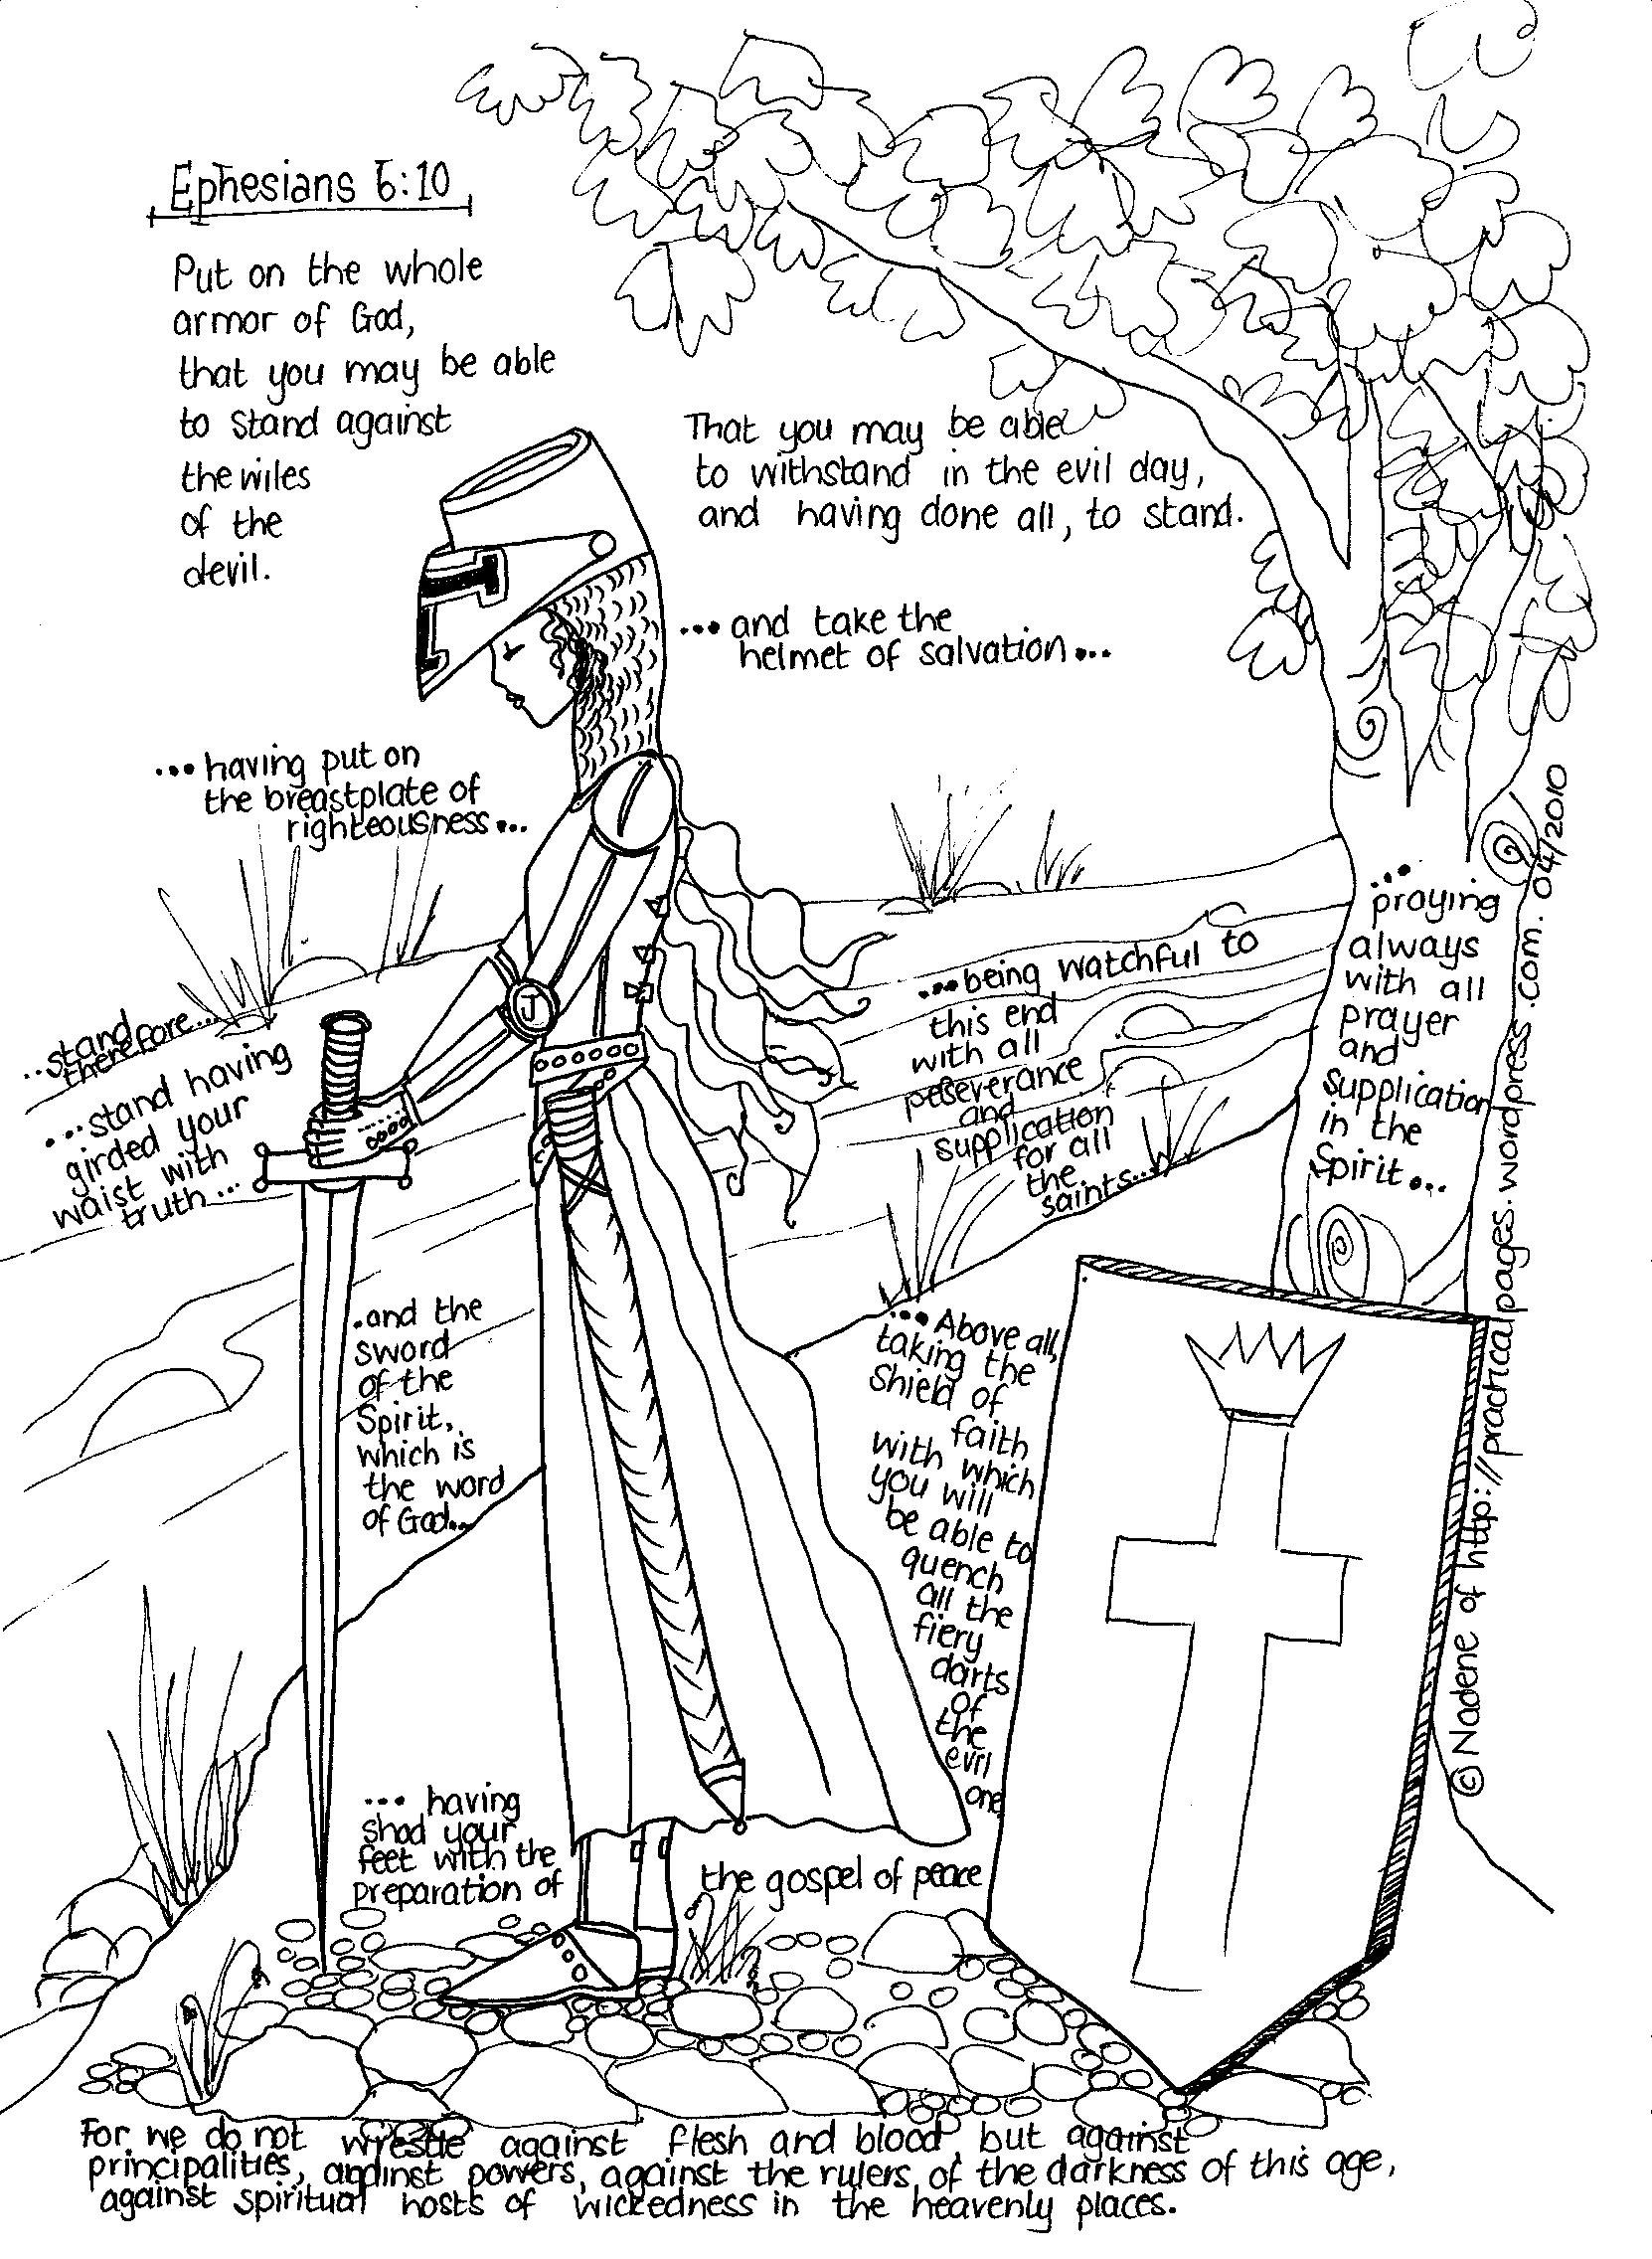 Ephesians 6:10
Put on the whole
armor of God,
that you may be able
to stand against
the wiles
of the
devil.
That you may be able
to withstand in the evil day,
and having done all, to stand.
...and take the
helmet of salvation...
...having put on
the breastplate of
righteousness...
...stand
therefore...
...stand having
girded your
waist with
truth...
J
...being watchful to
this end
with all
peseverance
and
supplication
for all
the
saints...
...
praying
always
with all
prayer
and
supplication
in the
Spirit...
.and the
sword
of the
Spirit,
which is
the word
of God...
...Above all,
taking the
shield of
faith
with which
you will
be able to
quench
all the
fiery
darts
of
the
evil
one
... having
shod your
feet with the
preparation of
the gospel of peace
For we do not wrestle against flesh and blood, but against
principalities, against powers, against the rulers of the darkness of this age,
against spiritual hosts of wickedness in the heavenly places.
© Nadene of http://practicalpages.wordpress.com. 04/2010